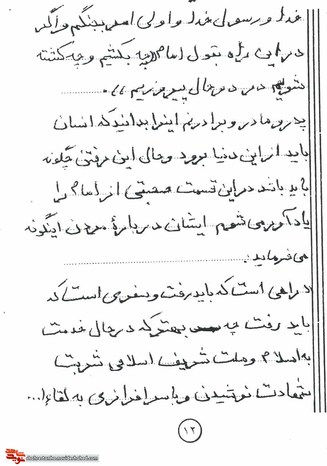 خدا و رسول خدا و اولی الامر بجنگم و اگر
در این راه بقول امام «چه بکشیم و چه کشته
شویم در هر دو حال پیروزیم»
پدر و مادر و برادرم اینرا بدانید که انسان
باید از این دنیا برود و حال این رفتن چگونه
باید باشد در این قسمت صحبتی از امام را
یادآور می شوم ایشان درباره مردن اینگونه
می فرماید:
راهی است که باید رفت و سفری است که
باید رفت چه بهتر که در حال خدمت
به اسلام و ملت شریف اسلامی شربت
شهادت نوشیدن و با سرافرازی به لقاء ا...
۱۲